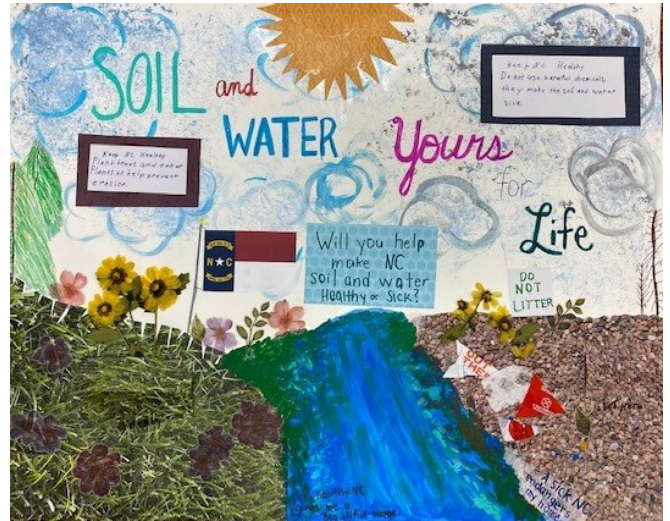 SOIL and
WATER Yours
for
Life
Keep NC Healthy
Do not use harmful chemicals,
they make the soil and water
sick.
Keep NC Healthy
Plant trees and other
Plants to help prevent
erosion.
N C
Will you help
make NC
soil and water
Healthy or Sick?
DO
NOT
LITTER
A healthy NC
gives me a
beautiful home
A sick NC
endangers
my home